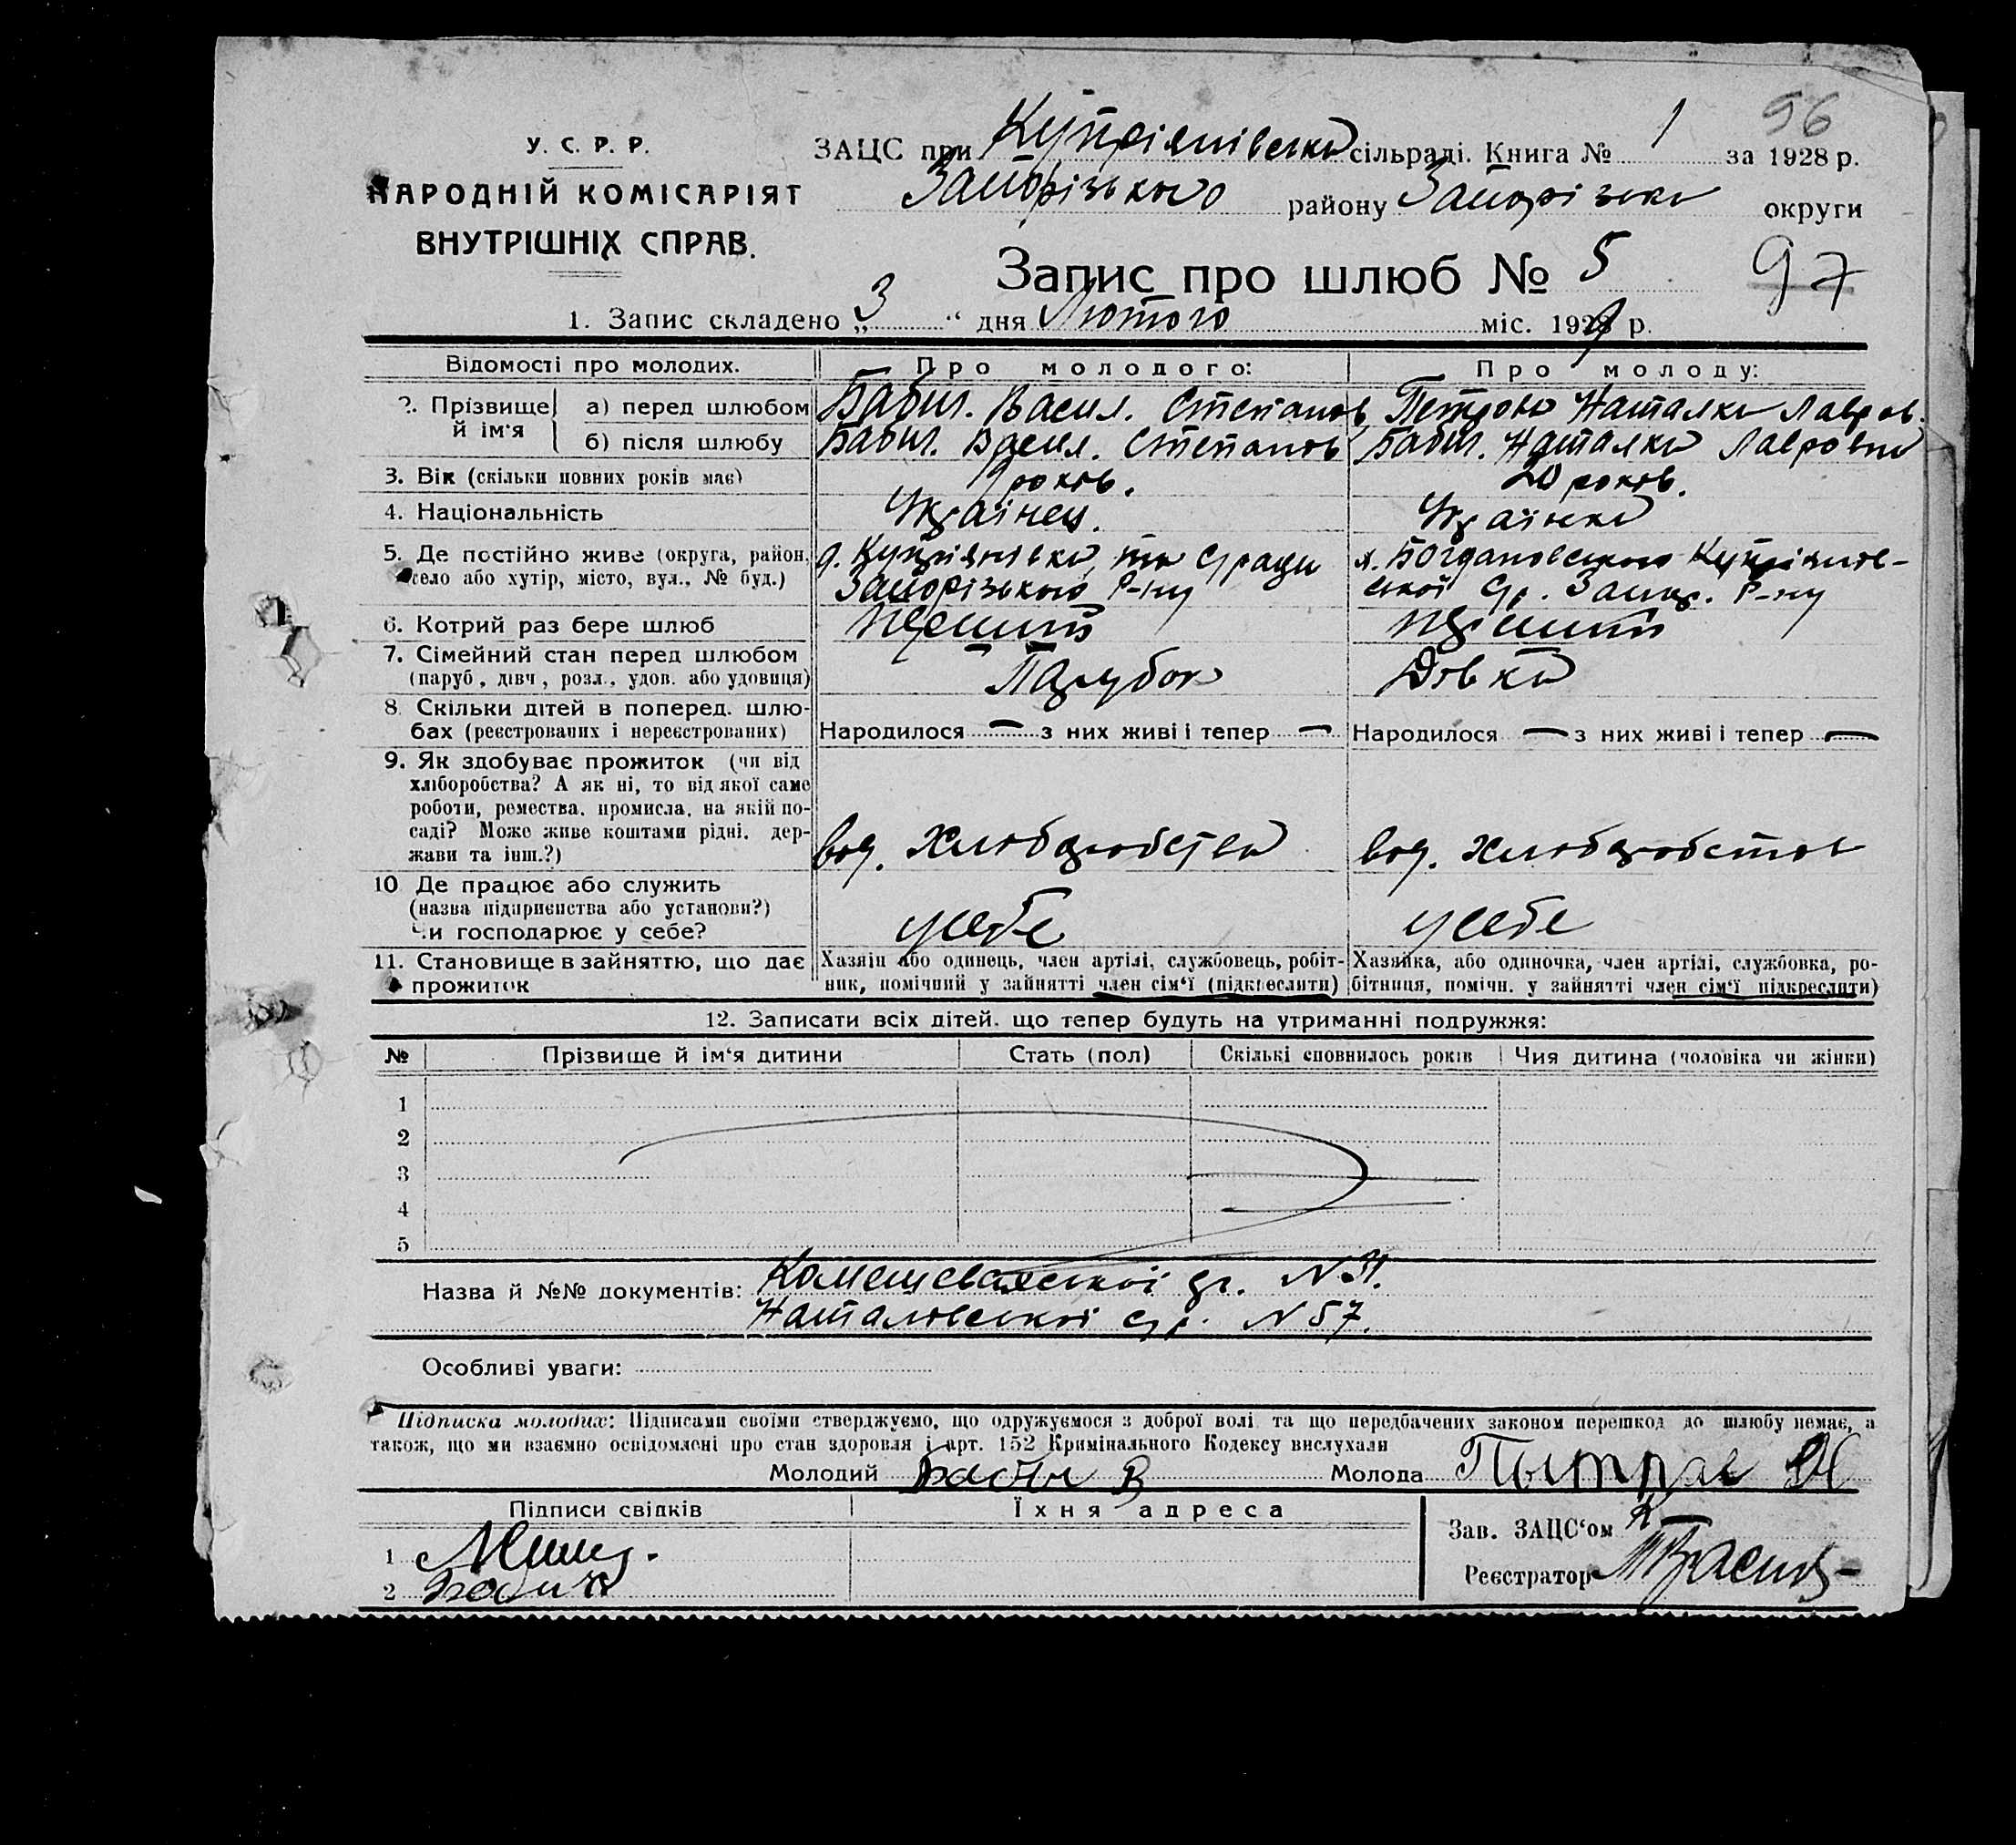 96
У. С. Р. Р.
НАРОДНІЙ КОМІСАРІЯТ
ВНУТРІШНІХ СПРАВ.
ЗАЦС при Купріянівська сільраді. Книга № 1 за 1928 р.
Запорізького району Запорізька округи
Запис про шлюб № 5 97
1. Запис складено „3“ дня Лютого міс. 1929 р.
Відомості про молодих. Про молодого: Про молоду:
2. Прізвище й ім'я а) перед шлюбом Бабич. Васил. Степанов Наталка Лавров.
б) після шлюбу Бабич. Васил. Степанов Бабич. Наталка Лавровна
3. Вік (скільки повних років має) років. 20 років.
4. Національність Українец. Українка
5. Де постійно живе (округа, район, Купріянівка
село або хутір, місто, вул., № буд.) Запорізького Р-ну
Богдановського Купріянов-
ської Ср. Запор. Р-ну
6. Котрий раз бере шлюб перший перший
7. Сімейний стан перед шлюбом Парубок Дівка
(паруб., дівч., розл., удов. або удовиця)
8. Скільки дітей в поперед. шлю-
бах (реєстрованих і нереєстрованих) Народилося — з них живі і тепер — Народилося — з них живі і тепер —
9. Як здобуває прожиток (чи від
хліборобства? А як ні, то від якої саме
роботи, ремества, промисла, на якій по-
саді? Може живе коштами рідні, дер-
жави та інш.?) від. Хліборобства від. Хліборобства
10 Де працює або служить
(назва підприємства або установи?)
Чи господарює у себе? усебе усебе
11. Становище в зайняттю, що дає
прожиток
Хазяїн або одинець, член артілі, службовець, робіт-
ник, помічний у зайнятті член сім'ї (підкреслити)
Хазяйка, або одиночка, член артілі, службовка, ро-
бітниця, помічн. у зайнятті член сім'ї підкреслити)
12. Записати всіх дітей, що тепер будуть на утриманні подружжя:
№ Прізвище й ім'я дитини Стать (пол) Скількі сповнилось років Чия дитина (чоловіка чи жінки)
1
2
3
4
5
Назва й №№ документів: Комешеваської ср. N 31.
Наталовської ср. N 57.
Особливі уваги:
Підписка молодих: Підписами своїми стверджуємо, що одружуємося з доброї волі та що передбачених законом перешкод до шлюбу немає, а
також, що ми взаємно освідомлені про стан здоровля і арт. 152 Кримінального Кодексу вислухали
Молодий Бабич В Молода
Підписи свідків Їхня адреса
Зав. ЗАЦС'ом
1
2 Бабич
Реєстратор